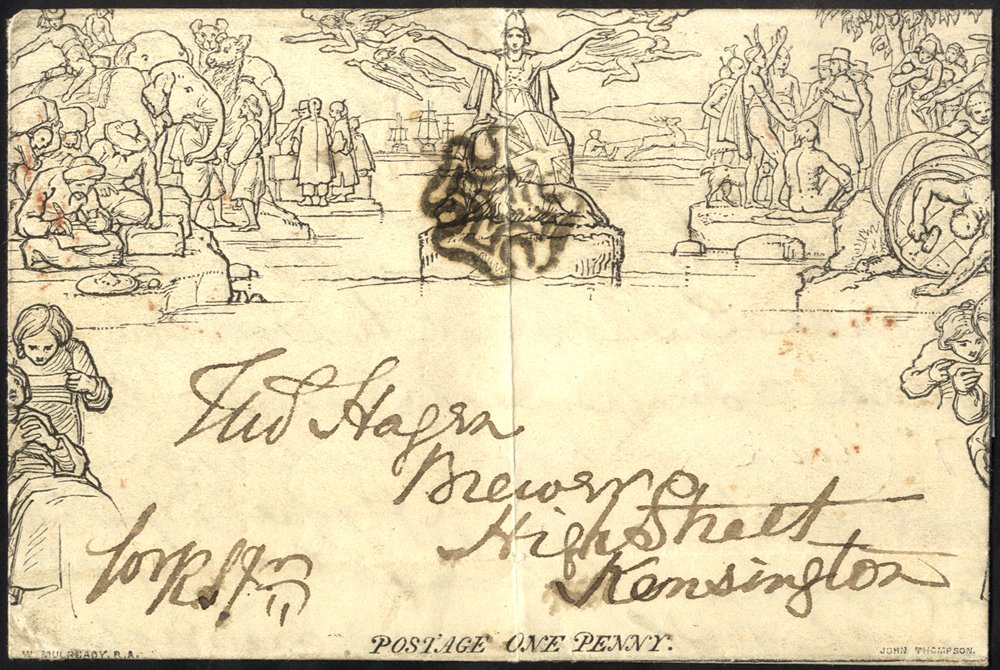 Hagen
Brewery
High Street
Kensington
POSTAGE ONE PENNY.
W. MULREADY. R.A.
JOHN THOMPSON.